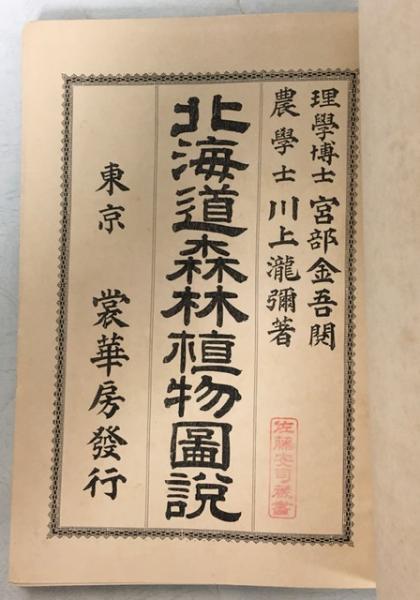 理學博士 宮部金吾閱
農學士 川上瀧彌著
北海道森林植物圖説
東京 裳華房發行
佐藤
司藏書